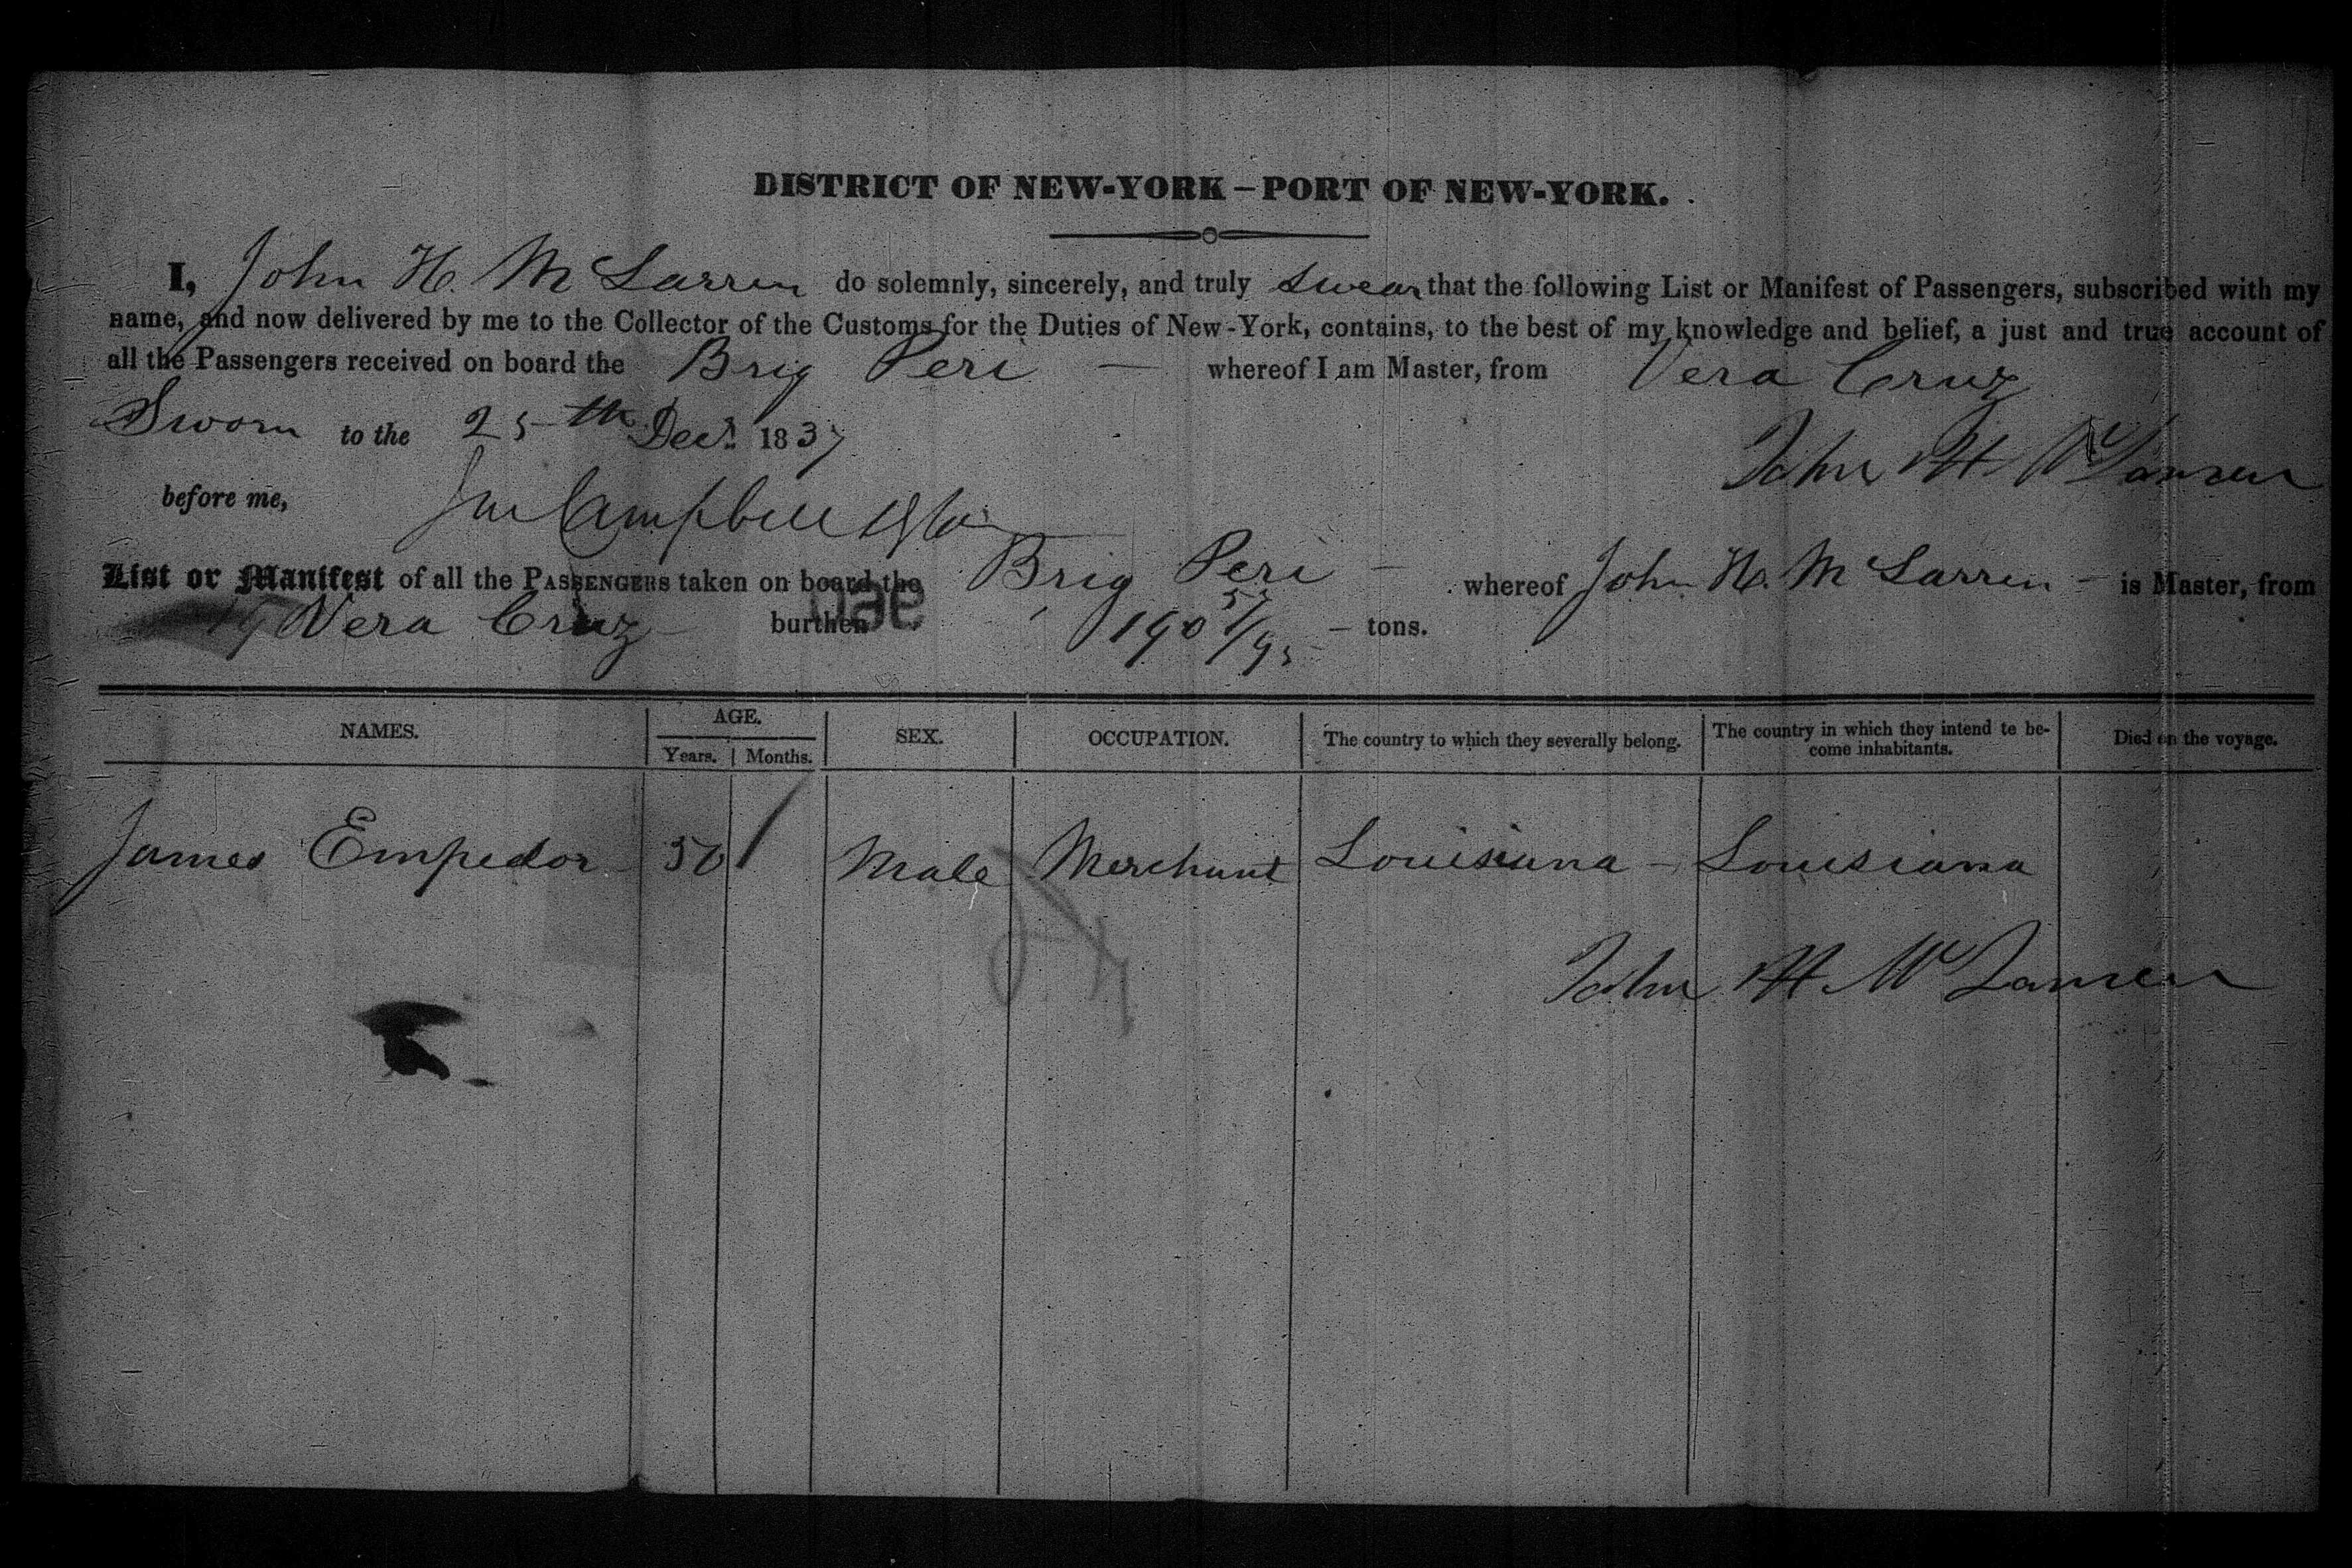 DISTRICT OF NEW-YORK – PORT OF NEW-YORK.
I, John H. Mc Larren do solemnly, sincerely, and truly swear that the following List or Manifest of Passengers, subscribed with my
name, and now delivered by me to the Collector of the Customs for the Duties of New-York, contains, to the best of my knowledge and belief, a just and true account of
all the Passengers received on board the Brig Peri — whereof I am Master, from Vera Cruz
Sworn to the 25th Decr. 1837
John H Mc Larren
before me,
Campbell
List or Manifest of all the PASSENGERS taken on board the Brig Peri – whereof John H. Mc Larren – is Master, from
Vera Cruz burthen 190 tons.
NAMES. AGE. SEX. OCCUPATION. The country to which they severally belong. The country in which they intend to be-
come inhabitants. Died on the voyage.
Years. Months.
James Empedor Male Merchant Louisiana – Louisiana
John H Mc Larren